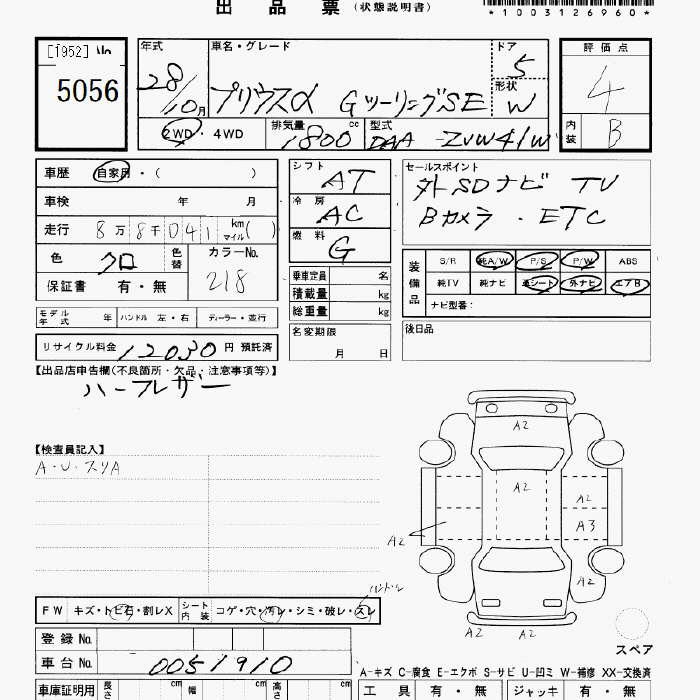 出品票 (状態説明書)
*1003126960*
[1952] No.
5056
年式
28/10月
車名・グレード
プリウスα GツーリングSE
ドア
5
形状
W
評価点
4
内装
B
2WD・4WD
排気量
1800 cc
型式
DAA -ZVW41W
車歴 自家用・( )
車検 年 月
走行 8万8千041 km マイル( )
色 クロ 色替
カラーNo.
218
保証書 有・無
シフト
AT
冷房
AC
燃料
G
乗車定員 名
積載量 kg
総重量 kg
セールスポイント
外SDナビ TV
Bカメラ・ETC
装備品
S/R 純A/W P/S P/W ABS
純TV 純ナビ 革シート 外ナビ エアB
ナビ型番:
モデル年式 年 ハンドル 左・右 ディーラー・並行
リサイクル料金 12030 円 預託済
名変期限
月 日
後日品
【出品店申告欄(不良箇所・欠品・注意事項等)】
ハーフレザー
【検査員記入】
A・U・スリA
A2
A2
A2
A3
A2
A2
A2 A2
ハンドル
FW キズ・トビ石・割レX シート内装 コゲ・穴・汚レ・シミ・破レ・スレ
登録No.
車台No. 0051910
スペア
A-キズ C-腐食 E-エクボ S-サビ U-凹ミ W-補修 XX-交換済
車庫証明用 長さ cm 幅 cm 高さ cm
工具 有・無 ジャッキ 有・無